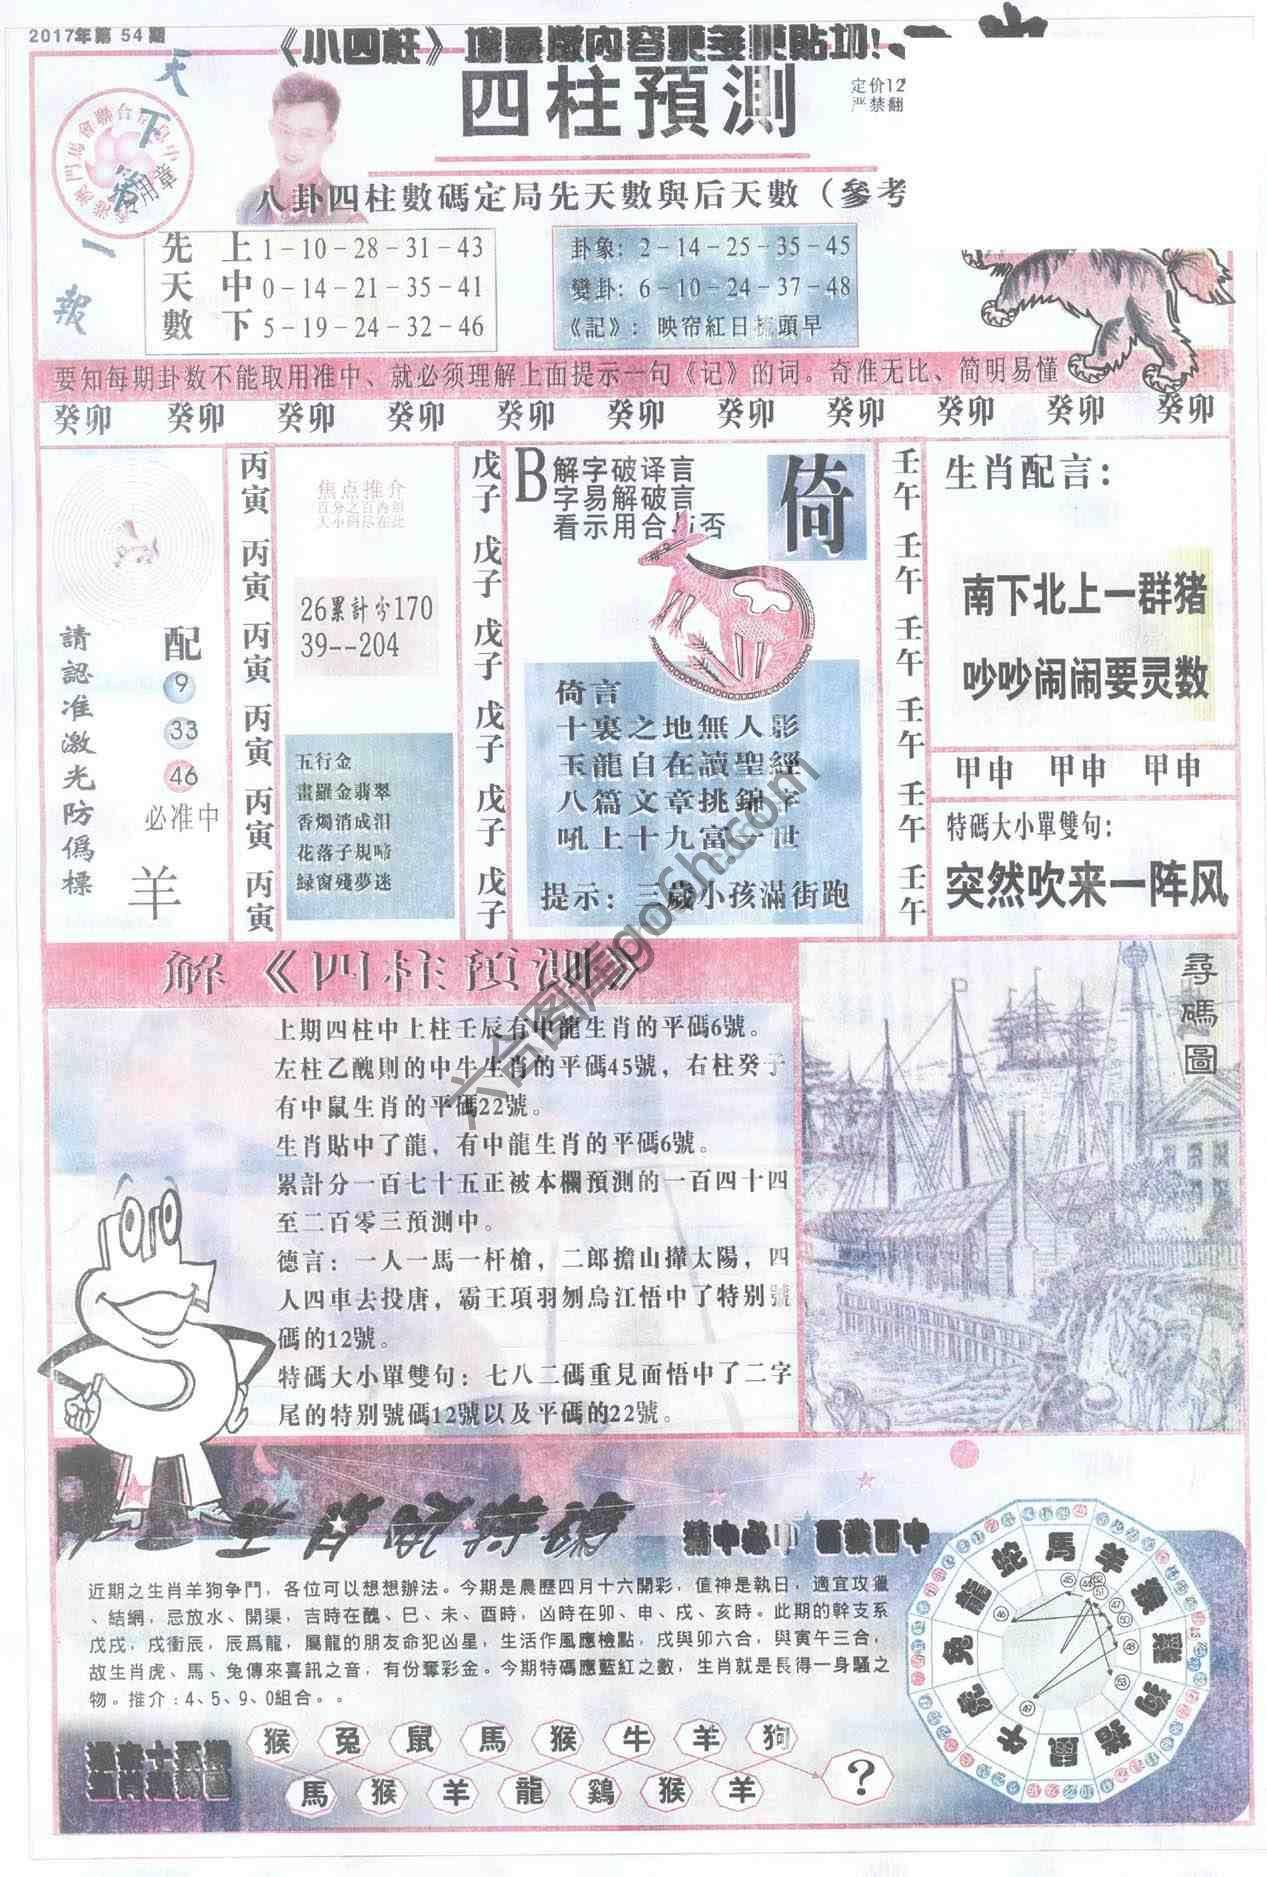 2017年第 54 期
《小四柱》增靈版內容更多更貼切!
四柱預測
定价12
严禁翻
天下第一報
八卦四柱數碼定局先天數與后天數（參考
先天數
上 1－10－28－31－43
中 0－14－21－35－41
下 5－19－24－32－46
卦象: 2－14－25－35－45
變卦: 6－10－24－37－48
《記》: 映帘紅日 頭早
要知每期卦数不能取用准中、就必须理解上面提示一句《记》的词。奇准无比、简明易懂
癸卯 癸卯 癸卯 癸卯 癸卯 癸卯 癸卯 癸卯 癸卯 癸卯 癸卯
請認准激光防僞標
配
9
33
46
必准中
羊
丙寅 丙寅 丙寅 丙寅 丙寅 丙寅
焦点推介
26累計分170
39--204
五行金
畫羅金翡翠
香燭消成泪
花落子規啼
緑窗殘夢迷
戊子 戊子 戊子 戊子 戊子 戊子
B
解字破译言
字易解破言
看示用合与否
倚
倚言
十裏之地無人影
玉龍自在讀聖經
八篇文章挑錦字
吼上十九富一世
提示: 三歲小孩滿街跑
壬午 壬午 壬午 壬午 壬午 壬午
生肖配言:
南下北上一群猪
吵吵闹闹要灵数
甲申 甲申 甲申
特碼大小單雙句:
突然吹来一阵风
解《四柱預測》
上期四柱中上柱壬辰有中龍生肖的平碼6號。
左柱乙醜則的中牛生肖的平碼45號，右柱癸子
有中鼠生肖的平碼22號。
生肖貼中了龍，有中龍生肖的平碼6號。
累計分一百七十五正被本欄預測的一百四十四
至二百零三預測中。
德言: 一人一馬一杆槍，二郎擔山攆太陽，四
人四車去投唐，霸王項羽刎烏江悟中了特别號
碼的12號。
特碼大小單雙句: 七八二碼重見面悟中了二字
尾的特别號碼12號以及平碼的22號。
尋碼圖
近期之生肖羊狗争鬥，各位可以想想辦法。今期是農歷四月十六開彩，值神是執日，適宜攻獵
、結網，忌放水、開渠，吉時在醜、巳、未、酉時，凶時在卯、申、戌、亥時。此期的幹支系
戊戌，戌衝辰，辰爲龍，屬龍的朋友命犯凶星，生活作風應檢點，戌與卯六合，與寅午三合，
故生肖虎、馬、兔傳來喜訊之音，有份奪彩金。今期特碼應藍紅之數，生肖就是長得一身騷之
物。推介:4、5、9、0組合。。
猴 兔 鼠 馬 猴 牛 羊 狗
馬 猴 羊 龍 鷄 猴 羊
?
馬 羊 猴 鷄 狗 猪 鼠 牛 虎 兔 龍 蛇
六合图库go6h.com